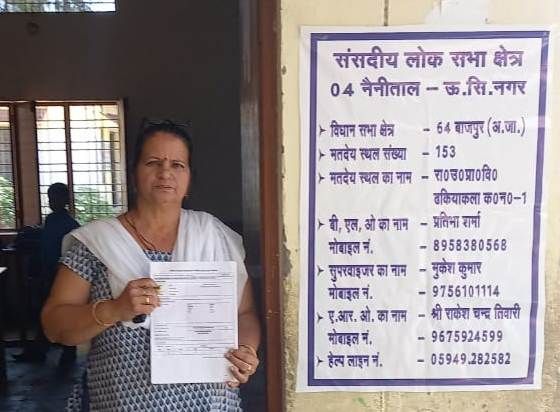 संसदीय लोक सभा क्षेत्र
04 नैनीताल – ऊ.सि.नगर
➤ विधान सभा क्षेत्र – 64 बाजपुर (अ.जा.)
➤ मतदेय स्थल संख्या – 153
➤ मतदेय स्थल का नाम – रा०उ०प्रा०वि०
ढकियाकला क०न०-1
➤ बी, एल, ओ का नाम – प्रतिभा शर्मा
मोबाईल नं. – 8958380568
➤ सुपरवाइजर का नाम – मुकेश कुमार
मोबाइल नं. – 9756101114
➤ ए.आर. ओ. का नाम – श्री राकेश चन्द्र तिवारी
मोबाइल नं. – 9675924599
➤ हेल्प लाइन नं. – 05949.282582